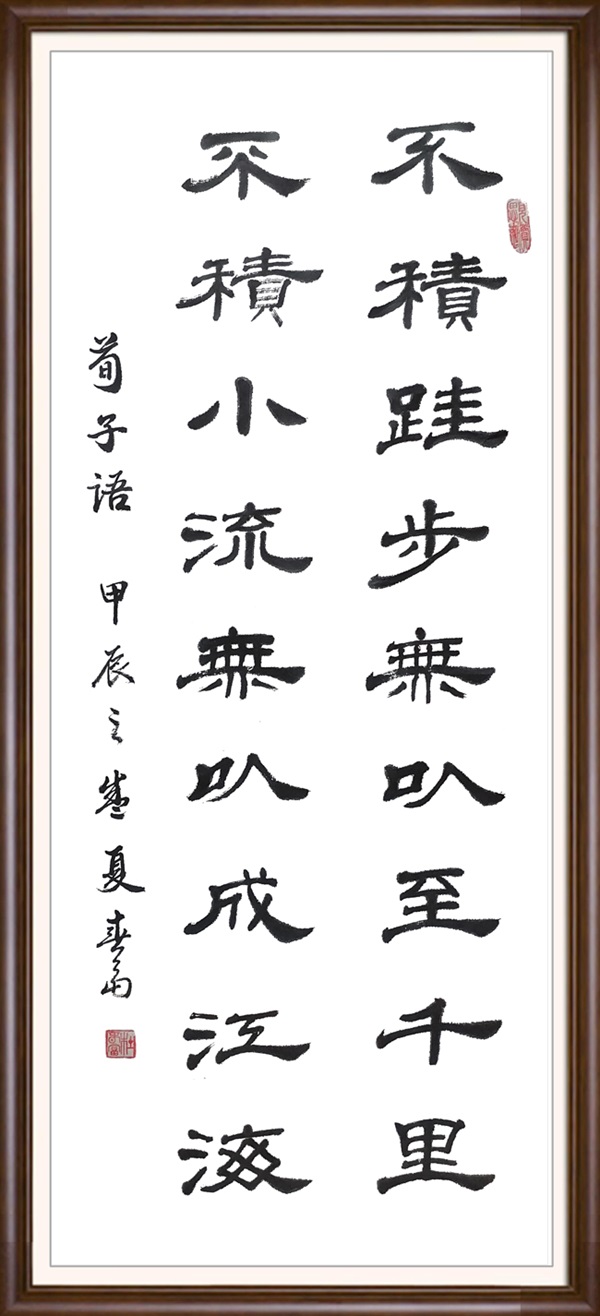 不積跬步無以至千里
不積小流無以成江海
荀子语 甲辰之盛夏春富